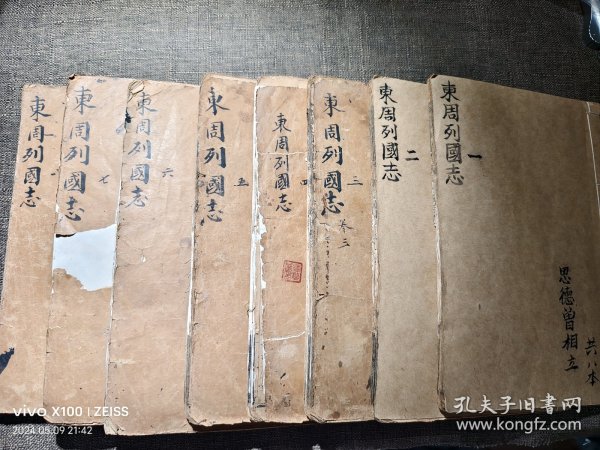 東周列國志
一
恩德曾相立
共八本
東周列國志
二
東周列國志
三
卷三
東周列國志
四
東周列國志
五
東周列國志
六
東周列國志
七
東周列國志
vivo X100 | ZEISS
2024.05.09 21:42
孔夫子旧书网
www.kongfz.com